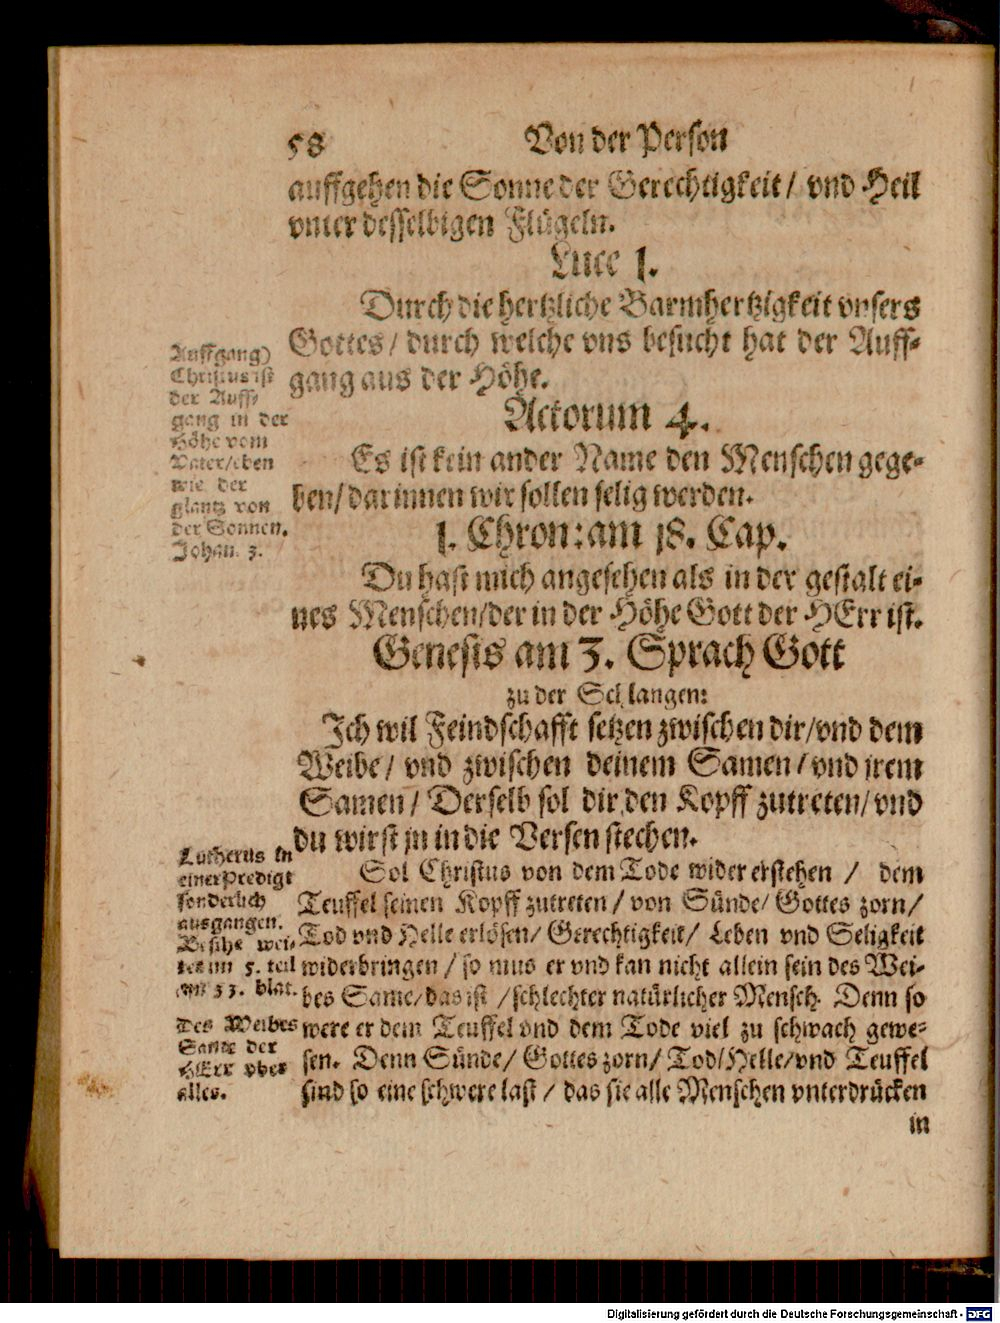 58 Von der Person
auffgehen die Sonne der Gerechtigkeit / vnd Heil
vnter desselbigen Flügeln.
Luce 1.
Durch die hertzliche Barmhertzigkeit vnsers
Gottes / durch welche vns besucht hat der Auff-
gang aus der Höhe.
Auffgang)
Christus ist
der Auff-
gang in der
Höhe vom
Vater/eben
wie der
glantz von
der Sonnen.
Johan. 3.
Actorum 4.
Es ist kein ander Name den Menschen gege-
ben/ darinnen wir sollen selig werden.
1. Chron: am 18. Cap.
Du hast mich angesehen als in der gestalt ei-
nes Menschen/der in der Höhe Gott der HErr ist.
Genesis am 3. Sprach Gott
zu der Schlangen:
Ich wil Feindschafft setzen zwischen dir/vnd dem
Weibe / vnd zwischen deinem Samen / vnd jrem
Samen / Derselb sol dir den Kopff zutreten/ vnd
du wirst jn in die Versen stechen.
Lutherus in
einer Predigt
sonderlich
ausgangen.
Besihe wei-
ter im 5. teil
am 33. blat.
Sol Christus von dem Tode wider erstehen / dem
Teuffel seinen Kopff zutreten / von Sünde/ Gottes zorn/
Tod vnd Helle erlösen/ Gerechtigkeit/ Leben vnd Seligkeit
widerbringen / so mus er vnd kan nicht allein sein des Wei-
bes Same/ das ist / schlechter natürlicher Mensch. Denn so
were er dem Teuffel vnd dem Tode viel zu schwach gewe-
sen. Denn Sünde/ Gottes zorn/ Tod/Helle/vnd Teuffel
sind so eine schwere last / das sie alle Menschen vnterdrücken
Des Weibes
Same der
HErr vber
alles.
in
Digitalisierung gefördert durch die Deutsche Forschungsgemeinschaft - DFG